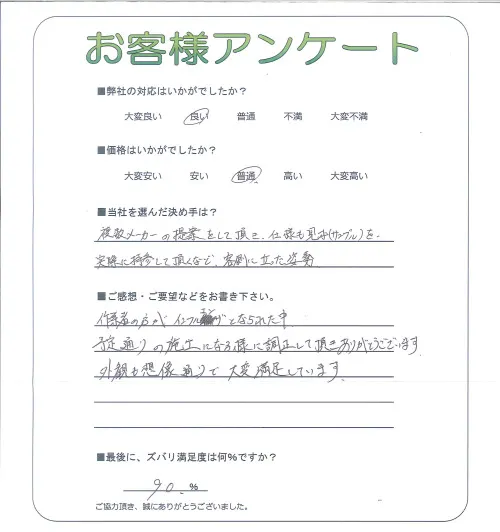 お客様アンケート
■弊社の対応はいかがでしたか？
大変良い 良い 普通 不満 大変不満
■価格はいかがでしたか？
大変安い 安い 普通 高い 大変高い
■当社を選んだ決め手は？
複数メーカーの提案をして頂き、仕様も見本(サンプル)を、
実際に持参して頂くなど、客側に立った姿勢
■ご感想・ご要望などをお書き下さい。
作業者の方がインフル となられた中
予定通りの施工になる様に調正して頂きありがとうございます。
外観も想像通りで大変満足しています。
■最後に、ズバリ満足度は何%ですか？
90. %
ご協力頂き、誠にありがとうございました。